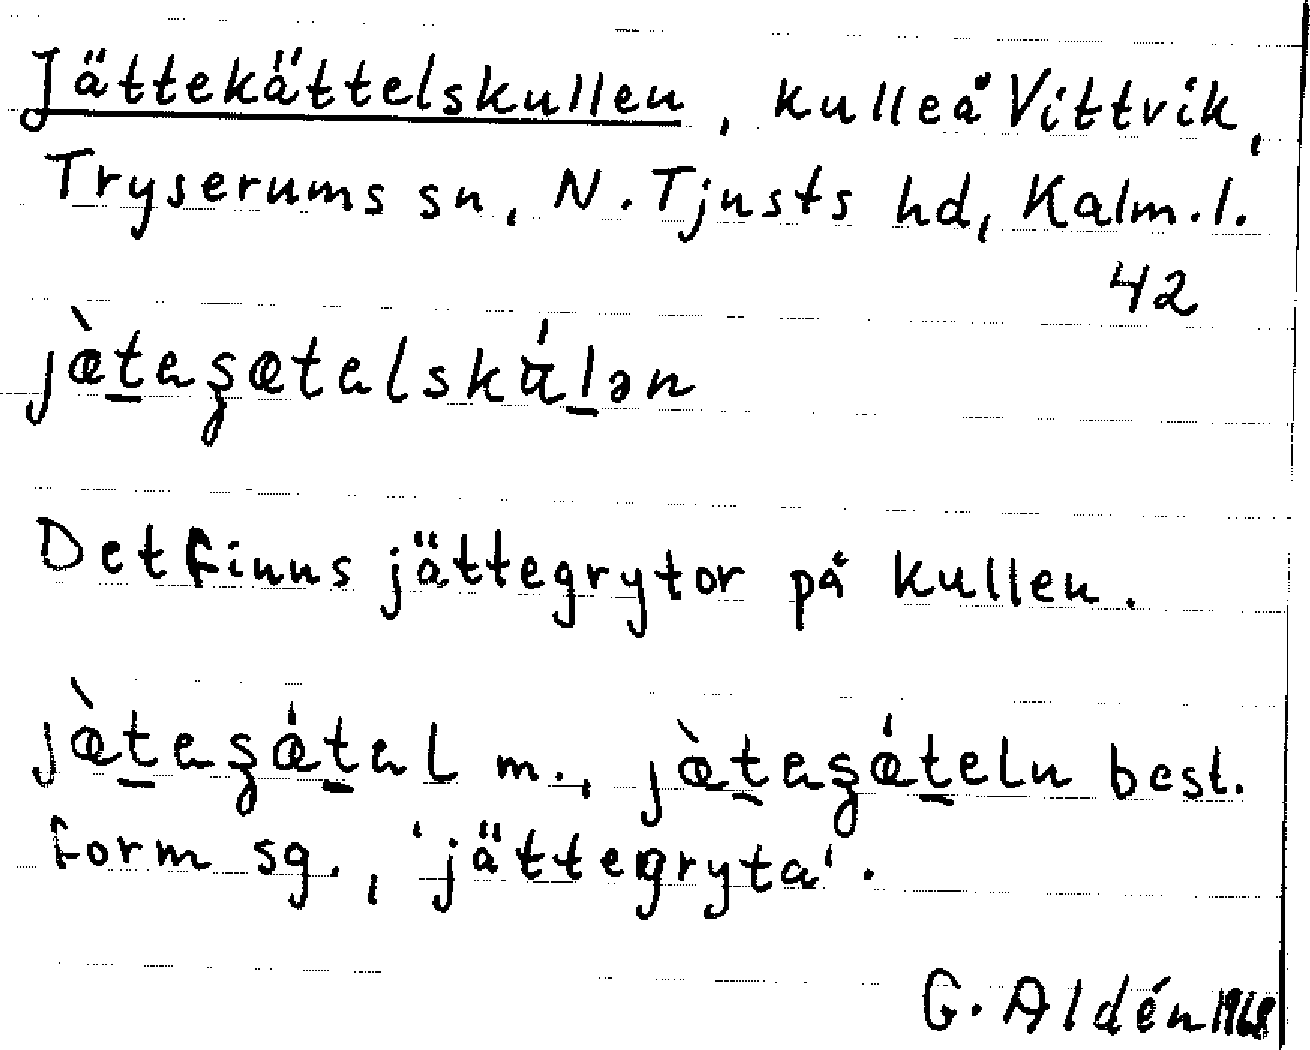 Jättekättelskullen, kulle å Vittvik,
Tryserums sn, N. Tjusts hd, Kalm. l.
42
jæ̀t̲eʂætelskɯ́l̲ən
Det finns jättegrytor på kullen.
jæ̀t̲eʂǽt̲el m., jæ̀t̲eʂǽt̲eln best.
form sg., 'jättegryta'.
G. Aldén 1968